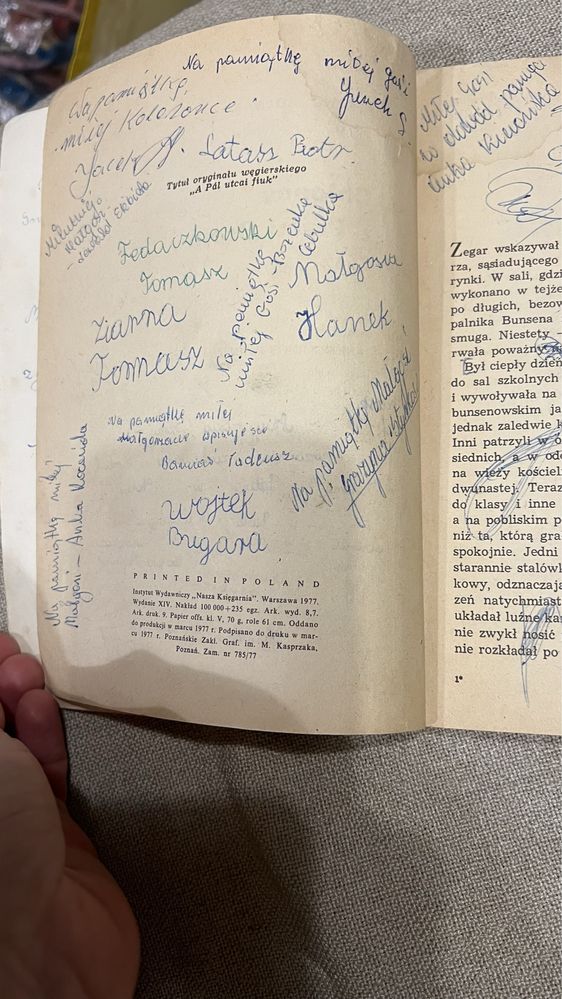 Na pamiątkę miłej Gosi
Na pamiątkę
miłej koleżance
Jacek
Latasz Piotr
Tytuł oryginału węgierskiego
„A Pál utcai fiuk"
Fedaczkowski
Tomasz
Zianna
Tomasz
Na pamiątkę
miłej Gosi - Bożenka
Cebulka
Małgosia
Hanek
Na pamiątkę miłej
Małgorzacie wpisuje się
Tadeusz
Na pamiątkę Małgosi
Grażyna
Wojtek
Bugara
Na pamiątkę miłej
Małgosi - Anka
PRINTED IN POLAND
Instytut Wydawniczy „Nasza Księgarnia". Warszawa 1977.
Wydanie XIV. Nakład 100 000+235 egz. Ark. wyd. 8,7.
Ark. druk. 9. Papier offs. kl. V, 70 g, rola 61 cm. Oddano
do produkcji w marcu 1977 r. Podpisano do druku w mar-
cu 1977 r. Poznańskie Zakł. Graf. im. M. Kasprzaka,
Poznań. Zam. nr 785/77
Miłej Gosi
Anka
Zegar wskazywał
rza, sąsiadującego
rynki. W sali, gdzi
wykonano w tejże
po długich, bezow
palnika Bunsena
smuga. Niestety –
rwała poważny
Był ciepły dzień
do sal szkolnych
i wywoływała na
bunsenowskim ja
jednak zaledwie k
Inni patrzyli w o
siednich, a w ode
na wieży kościel
dwunastej. Teraz
do klasy i inne
a na pobliskim p
niż ta, którą gra
spokojnie. Jedni
starannie stalówk
kowy, odznaczają
zeń natychmiast
układał luźne kar
nie zwykł nosić
nie rozkładał po
1*